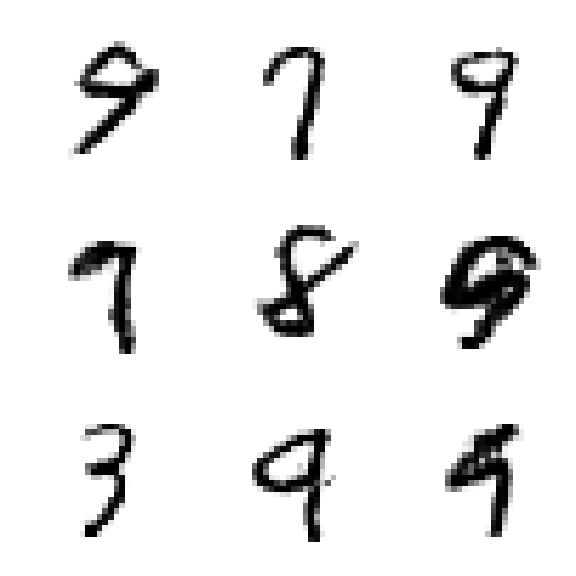 9 7 9
7 8 9
3 9 9